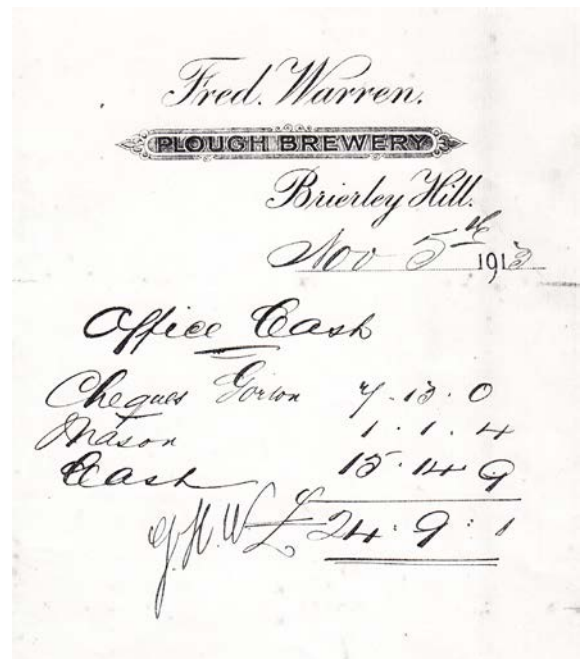 Fred. Warren.
PLOUGH BREWERY
Brierley Hill.
Nov 5th 1913
Office Cash
Cheques 7.13.0
Mason 1.1.4
Cash 15.14 9
J.H.W £ 24:9:1